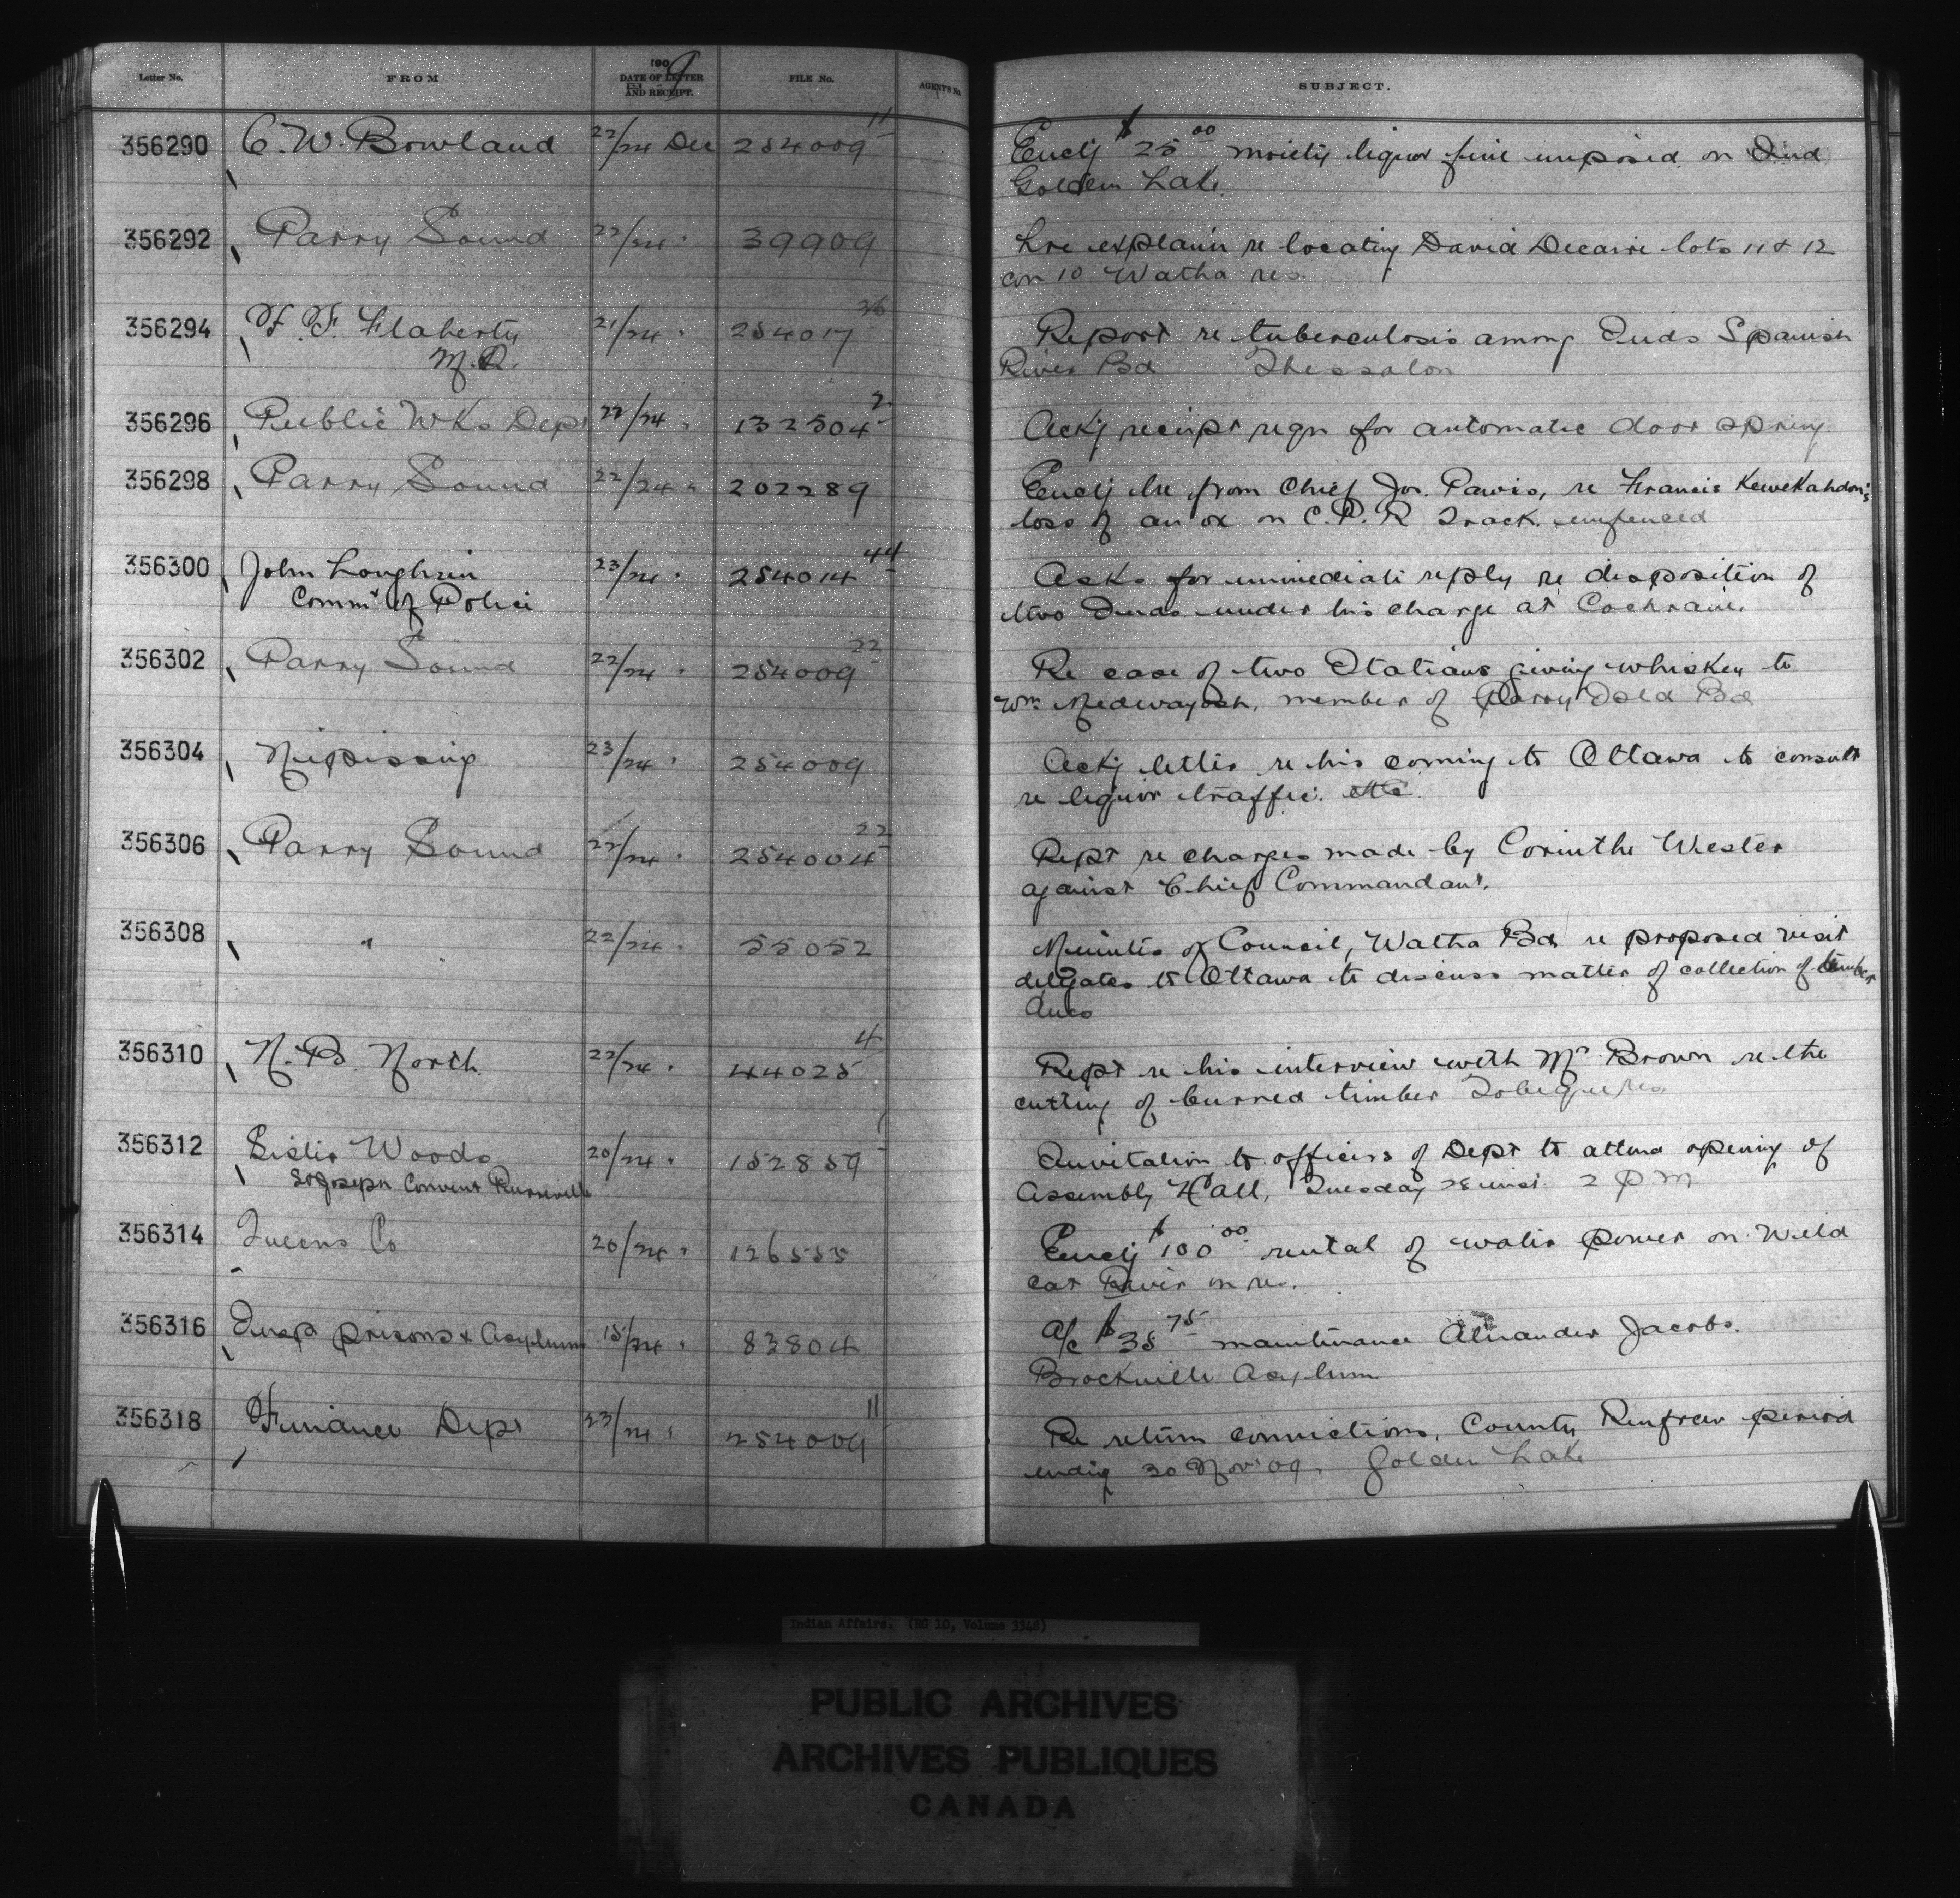 Letter No. FROM 1909 DATE OF LETTER AND RECEIPT. FILE No. AGENT'S No. SUBJECT.
356290 C. W. Bowland 22/24 Dec 254009 11 Enclg $25 00 moiety liquor fine imposed on Ind
Golden Lake.
356292 Parry Sound 22/24 " 39909 Lre explain re locating David Decaire lots 11 & 12
con 10 Watha res.
356294 Flaherty 21/24 " 254017 36 Report re tuberculosis among Inds Spanish
M.D. River Bd Thessalon
356296 Public Wks Dept 22/24 " 132504 2 Ackg receipt reqn for automatic door spring
356298 Parry Sound 22/24 " 202289 Enclg lre from Chief Jos. Pawis, re Francis Kewekahdon's
loss of an ox on C.P.R Track. unfenced
356300 John Loughrin 23/24 " 254014 44 Asks for immediate reply re disposition of
Commr of Police two Inds. under his charge at Cochrane.
356302 Parry Sound 22/24 " 254009 22 Re case of two Italians giving whiskey to
Wm. Medwayosh, member of Parry Isld Bd
356304 Nipissing 23/24 " 254009 Ackg letter re his coming to Ottawa to consult
re liquor traffic. etc.
356306 Parry Sound 22/24 " 254004 22 Rept re charges made by Corinthe Wester
against Chief Commandant.
356308 " 22/24 " 55052 Minutes of Council, Watha Bd re proposed visit
delgates to Ottawa to discuss matter of collection of timber
dues
356310 N. B. North 22/24 " 44025 4 Rept re his interview with Mr Brown re the
cutting of burned timber Tobique res.
356312 Lister Woods 20/24 " 152859 1 Invitation to officers of Dept to attend opening of
St Joseph Convent Assembly Hall, Tuesday 28 inst. 2 P.M
356314 Queens Co 20/24 " 126555 Enclg $100 00 rental of water power on Wild
cat River on res.
356316 Insp prisons & Asylums 15/24 " 83804 a/c $35 75 maintenance Alexander Jacobs.
Brockville Asylum
356318 Finance Dept 23/24 " 254009 11 Re return convictions, County Renfrew period
endig 30 Nov '09, Golden Lake
Indian Affairs. (RG 10, Volume 3348)
PUBLIC ARCHIVES
ARCHIVES PUBLIQUES
CANADA